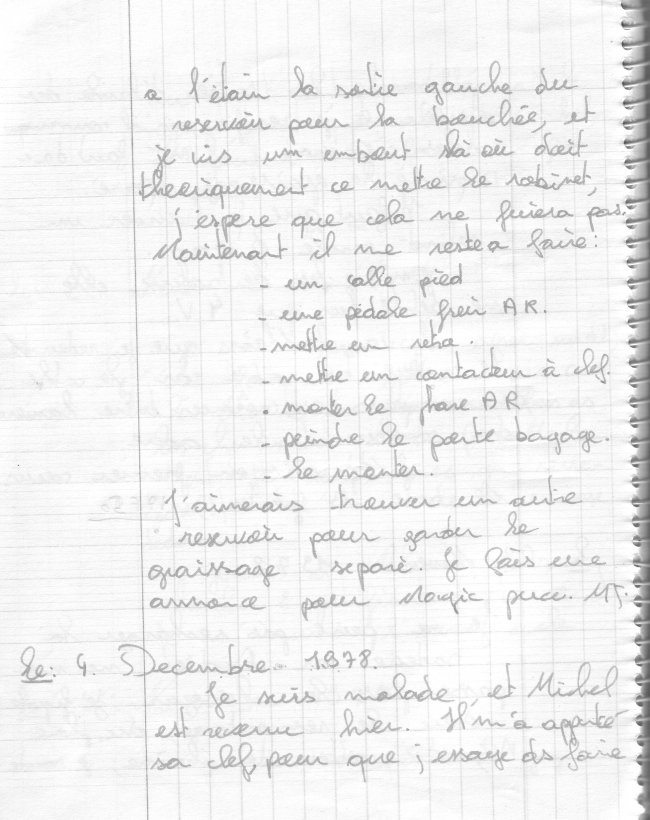 a l'étain la sortie gauche du
reservoir pour la bouchée, et
je vis un embout là où doit
theoriquement ce mettre le robinet,
j'espere que cela ne fuiera pas.
Maintenant il me reste a faire:
- un calle pied
- une pédale frein AR.
- mettre un retro.
- mettre un contacteur à clef.
- monter le phare AR
- peindre le porte bagage.
- le monter.
J'aimerais trouver un autre
reservoir pour garder le
graissage separé. Je fais une
annonce pour Magic puce. MJ.
Le: 4. Decembre. 1978.
Je suis malade, et Michel
est revenu hier. Il m'a apporté
sa clef, pour que j'essaye de faire